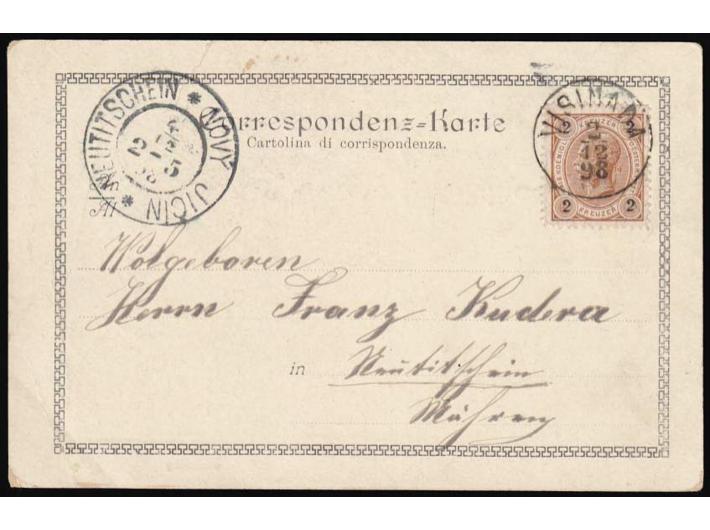 NEUTITSCHEIN * NOVÝ JIČÍN *
Correspondenz=Karte
Cartolina di corrispondenza.
VISINADA
2
12
98
2 2
KREUZER
Wolgeboren
Herrn Franz Kudera
in Neutitschein
Mähren